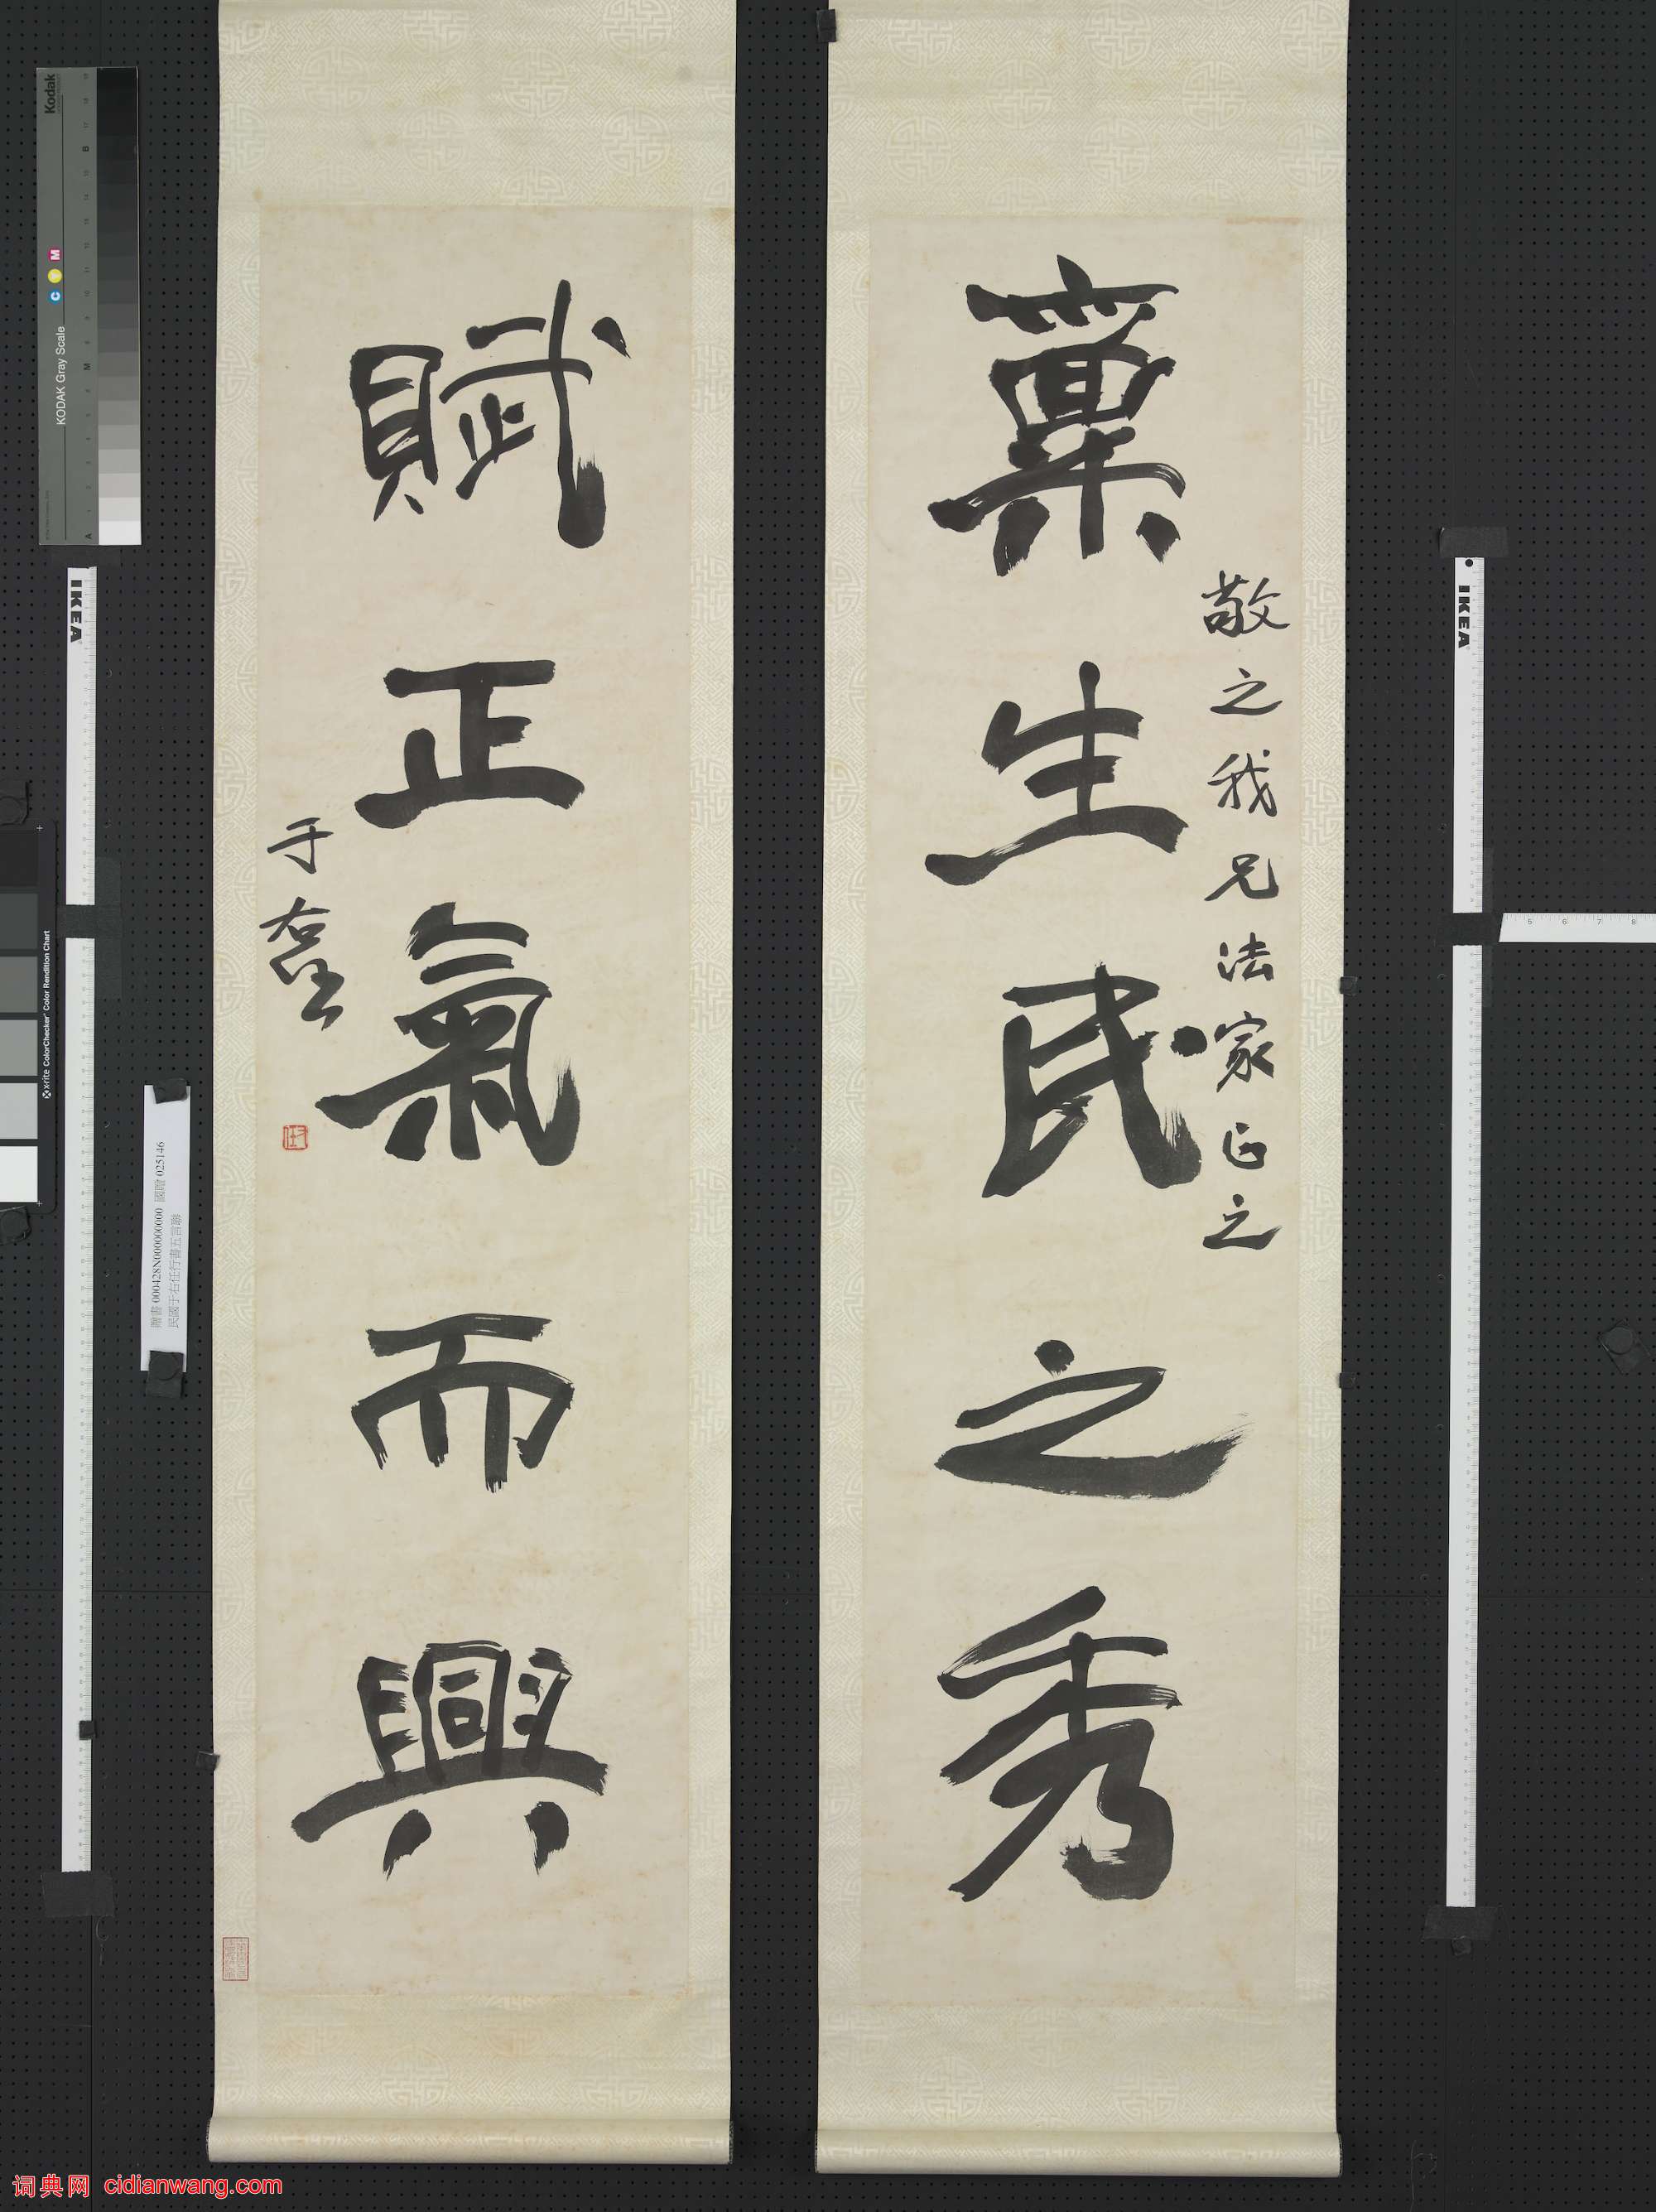 稟生民之秀
敬之我兄法家正之
賦正氣而興
于右任
Kodak
KODAK Gray Scale
C Y M
A
M
B
IKEA
IKEA
5 6 7 8
x-rite ColorChecker Color Rendition Chart
贈書 000428N000000000 國贈 025146
民國于右任行書五言聯
词典网 cidianwang.com